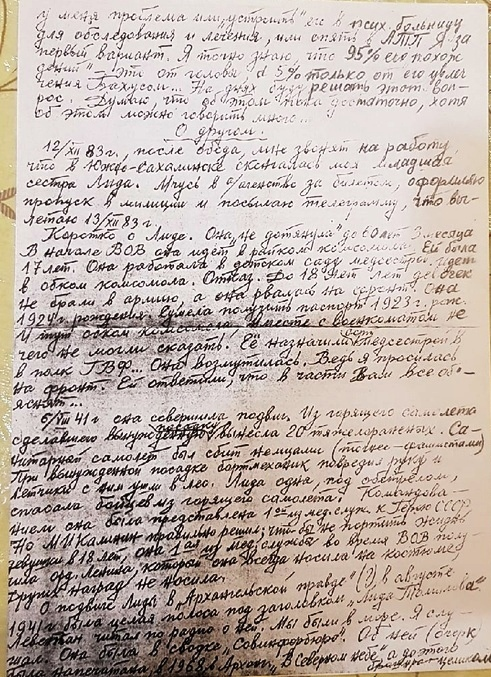 у меня проблема или „устроить" его в псих. больницу
для обследования и лечения, или опять в ЛТП. Я за
первый вариант. Я точно знаю, что 95% его похож-
дений – это от головы, а 5% только от его увле-
чения Бахусом... На днях буду решать этот воп-
рос. Думаю, что об этом пока достаточно, хотя
об этом можно говорить много...
О другом.
12/XII 83 г., после обеда, мне звонят на работу,
что в Южно-Сахалинске скончалась моя младшая
сестра Лида. Мчусь в а/агенство за билетом, оформляю
пропуск в милиции и посылаю телеграмму, что вы-
летаю 13/XII 83 г.
Коротко о Лиде. Она не дотянула до 60 лет 3 месяца
В начале ВОВ она идёт в райком комсомола. Ей было
17 лет. Она работала в детском саду медсестрой, идет
в обком комсомола. Отказ. До 18 лет девочек
не брали в армию, а она рвалась на фронт. Она
1924 г. рождения. Сумела получить паспорт 1923 г. рож.
И тут обком комсомола вместе с военкоматом не
чего не могли сказать. Её назначили медсестрой в
в полк ГВФ... Она возмутилась. Ведь я просилась
на фронт. Ей ответили, что в части Вам все об-
яснят...
6/VIII 41 г. она совершила подвиг. Из горящего самолета
сделавшего вынужденную вынесла 20 тяжелораненых. Са-
нитарный самолет был сбит немцами (точнее – фашистами)
При вынужденной посадке бортмеханик повредил руку и
летчики с ним ушли в лес. Лида одна, под обстрелом,
спасала бойцев из горящего самолета. Командова-
нием она была представлена 1ой из мед. служ. к Герою СССР,
Но М.И Калинин правильно решил: что бы не портить жизнь
девушки в 18 лет, она 1ая из мед. службы во время ВОВ полу-
чила орд. Ленина, который она всегда носила на костюме
других наград не носила.
О подвиге Лиды в „Архангельской правде" (?) в августе
1941 г была целая полоса под заголовком „Лида
Левитан читал по радио о ней. Мы были в море. Я слу-
шал. Она была в сводке „Совинформбюро". Об ней (очерк)
был напечатан в 1968 в Архан. „В Северном небе", а до этого